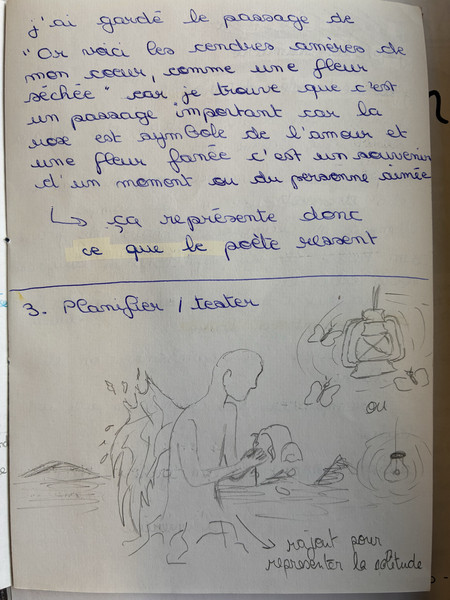 j'ai gardé le passage de
"Or voici les cendres amères de
mon cœur, comme une fleur
séchée" car je trouve que c'est
un passage important car la
rose est symbole de l'amour et
une fleur fanée c'est un souvenir
d'un moment ou du personne aimée
↳ ça représente donc
ce que le poète ressent
3. Planifier / tester
ou
rajout pour
représenter la solitude